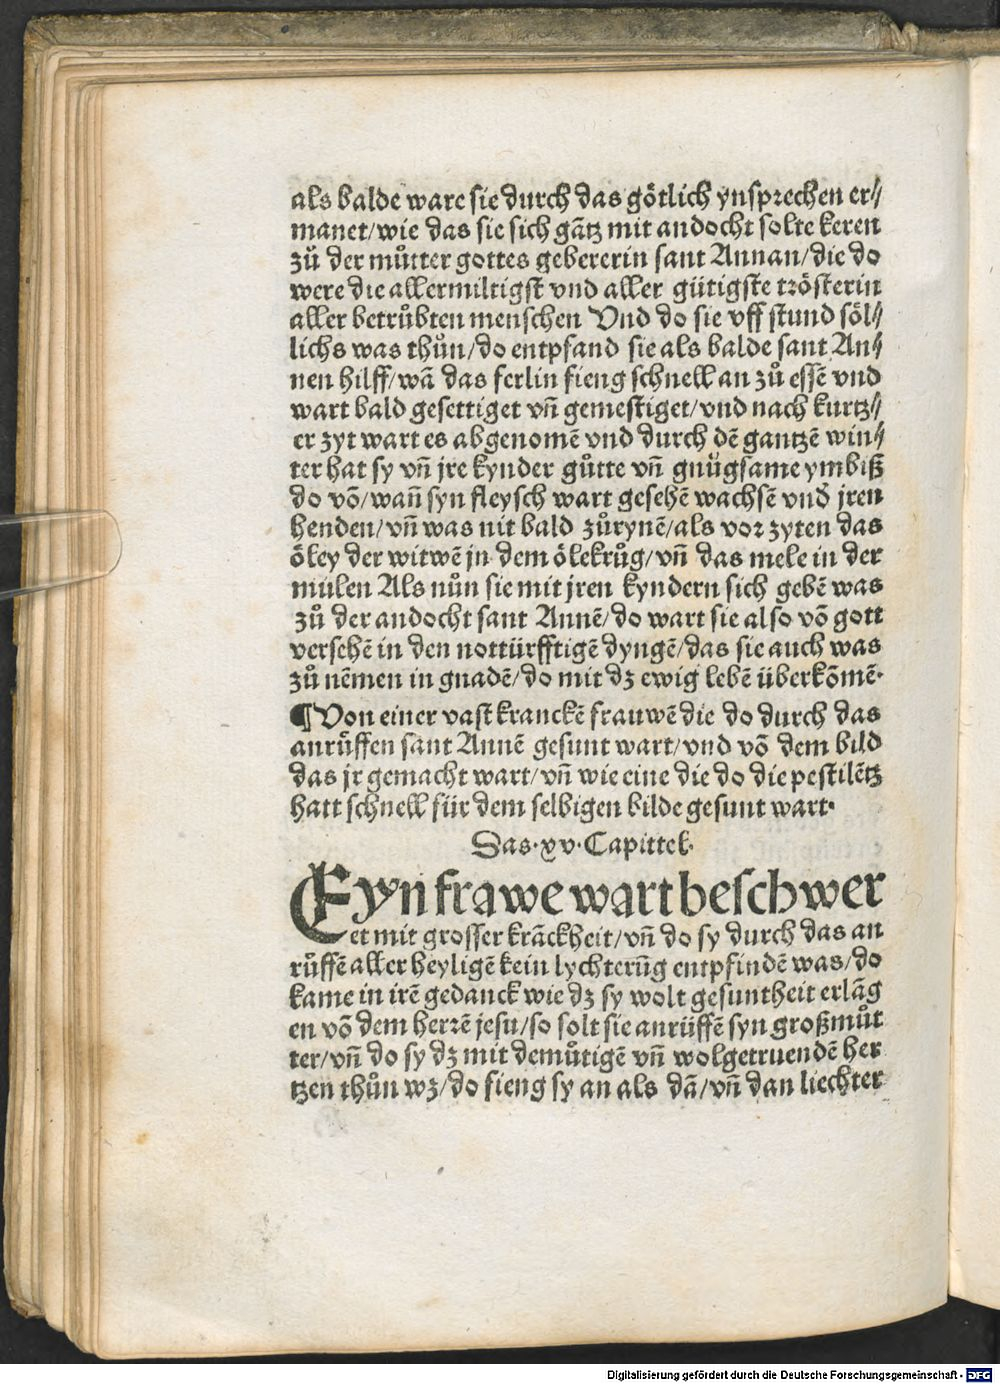 als balde ware sie durch das götlich ynsprechen er⸗
manet/wie das sie sich gātz mit andocht solte keren
zů der můtter gottes gebererin sant Annan/die do
were die allermiltigst vnd aller gütigste trösterin
aller betrůbten menschen Vnd do sie vff stund söl⸗
lichs was thůn/do entpfand sie als balde sant An⸗
nen hilff/wā das ferlin fieng schnell an zů essē vnd
wart bald gesettiget vn̄ gemestiget/vnd nach kurtz⸗
er zyt wart es abgenomē vnd durch dē gantzē win⸗
ter hat sy vn̄ jre kynder gůtte vn̄ gnůgsame ymbiß
do vō/wan̄ syn fleysch wart gesehē wachsē vnd̕ jren
henden/vn̄ was nit bald zůrynē/als vor zyten das
öley der witwē jn dem ölekrůg/vn̄ das mele in der
mülen Als nůn sie mit jren kyndern sich gebē was
zů der andocht sant Annē/do wart sie also vō gott
versehē in den nottürfftigē dyngē/das sie auch was
zů nēmen in gnadē/do mit dz ewig lebē überkōmē.
¶Von einer vast kranckē frauwē die do durch das
anrůffen sant Annē gesunt wart/vnd vō dem bild
das jr gemacht wart/vn̄ wie eine die do die pestilētz
hatt schnell für dem selbigen bilde gesunt wart.
Das.xv.Capittel.
Eyn frawe wart beschwer
et mit grosser krāckheit/vn̄ do sy durch das an
růffē aller heyligē kein lychterūg entpfindē was/do
kame in irē gedanck wie dz sy wolt gesuntheit erlāg
en vō dem herrē jesu/so solt sie anrüffē syn großmůt
ter/vn̄ do sy dz mit demůtigē vn̄ wolgetruendē her
tzen thůn wz/do fieng sy an als dā/vn̄ dan liechter
Digitalisierung gefördert durch die Deutsche Forschungsgemeinschaft - DFG